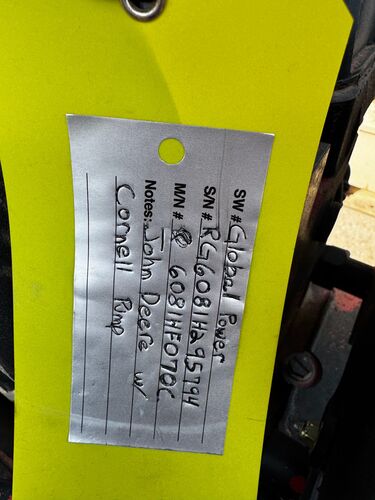 SW # Global Power
S/N # RG6081H295794
M/N # 6081HF070C
Notes: John Deere w/
Cornell Pump